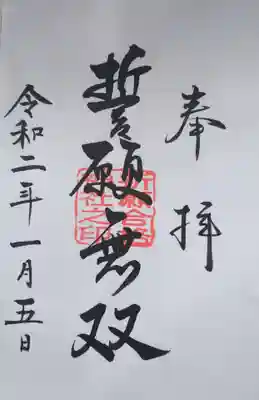 奉拝
誓願無双
令和二年一月五日